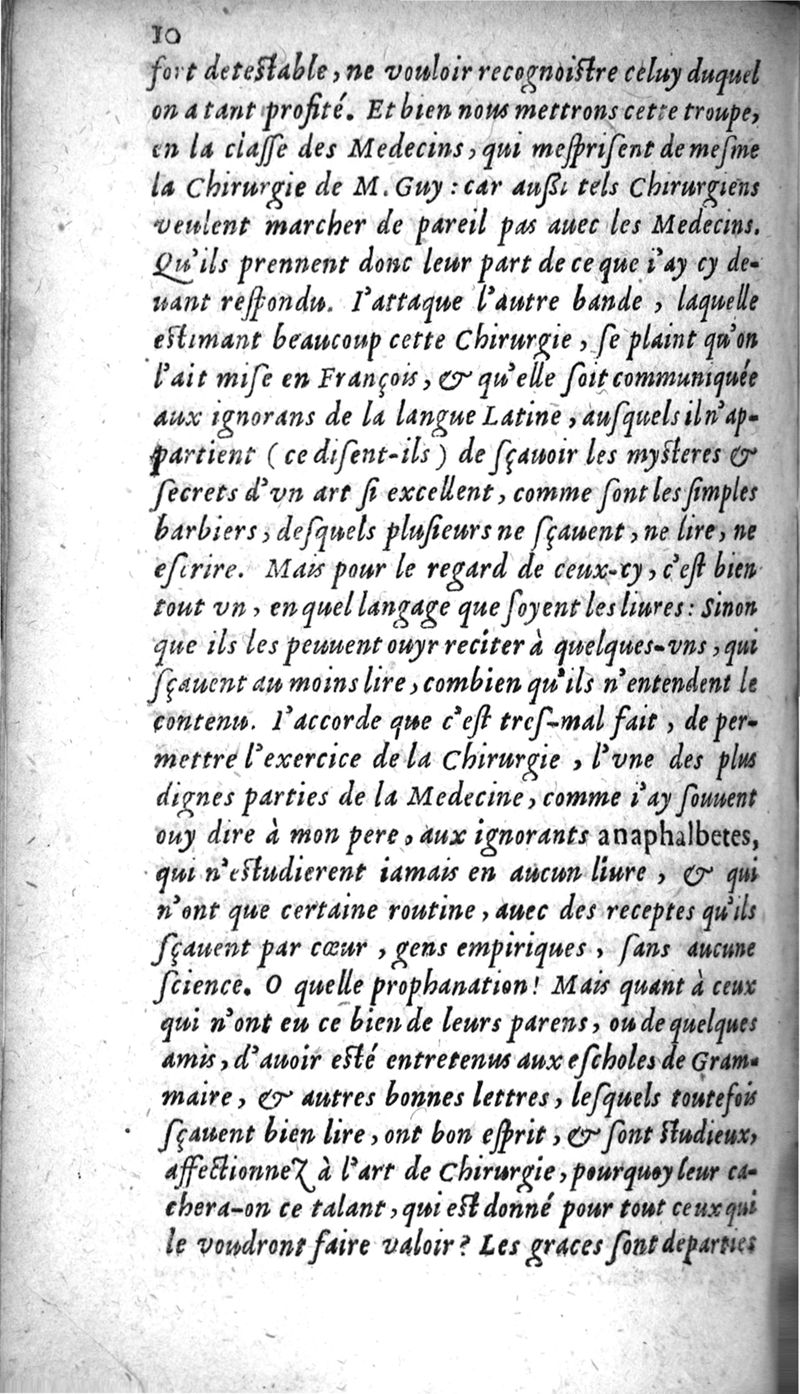 10
fort deteſtable, ne vouloir recognoiſtre celuy duquel
on a tant profité. Et bien nous mettrons cette troupe,
en la claſſe des Medecins, qui meſpriſent de meſme
la Chirurgie de M. Guy : car auſſi tels Chirurgiens
veulent marcher de pareil pas auec les Medecins.
Qu'ils prennent donc leur part de ce que i'ay cy de-
uant reſpondu. I'attaque l'autre bande , laquelle
eſtimant beaucoup cette Chirurgie , ſe plaint qu'on
l'ait miſe en François, & qu'elle ſoit communiquée
aux ignorans de la langue Latine , auſquels il n'ap-
partient ( ce diſent-ils ) de ſçauoir les myſteres &
ſecrets d'vn art ſi excellent, comme ſont les ſimples
barbiers, deſquels pluſieurs ne ſçauent, ne lire, ne
eſcrire. Mais pour le regard de ceux-cy, c'eſt bien
tout vn, en quel langage que ſoyent les liures : Sinon
que ils les peuuent ouyr reciter à quelques-vns , qui
ſçauent au moins lire, combien qu'ils n'entendent le
contenu. I'accorde que c'eſt treſ-mal fait , de per-
mettre l'exercice de la Chirurgie , l'vne des plus
dignes parties de la Medecine, comme i'ay ſouuent
ouy dire à mon pere, aux ignorants anaphalbetes,
qui n'eſtudierent iamais en aucun liure , & qui
n'ont que certaine routine, auec des receptes qu'ils
ſçauent par cœur , gens empiriques , ſans aucune
ſcience. O quelle prophanation! Mais quant à ceux
qui n'ont eu ce bien de leurs parens, ou de quelques
amis, d'auoir eſté entretenus aux eſcholes de Gram-
maire, & autres bonnes lettres, leſquels toutefois
ſçauent bien lire, ont bon eſprit, & ſont ſtudieux,
affectionnez à l'art de Chirurgie, pourquoy leur ca-
chera-on ce talant, qui eſt donné pour tout ceux qui
le voudront faire valoir ? Les graces ſont departies